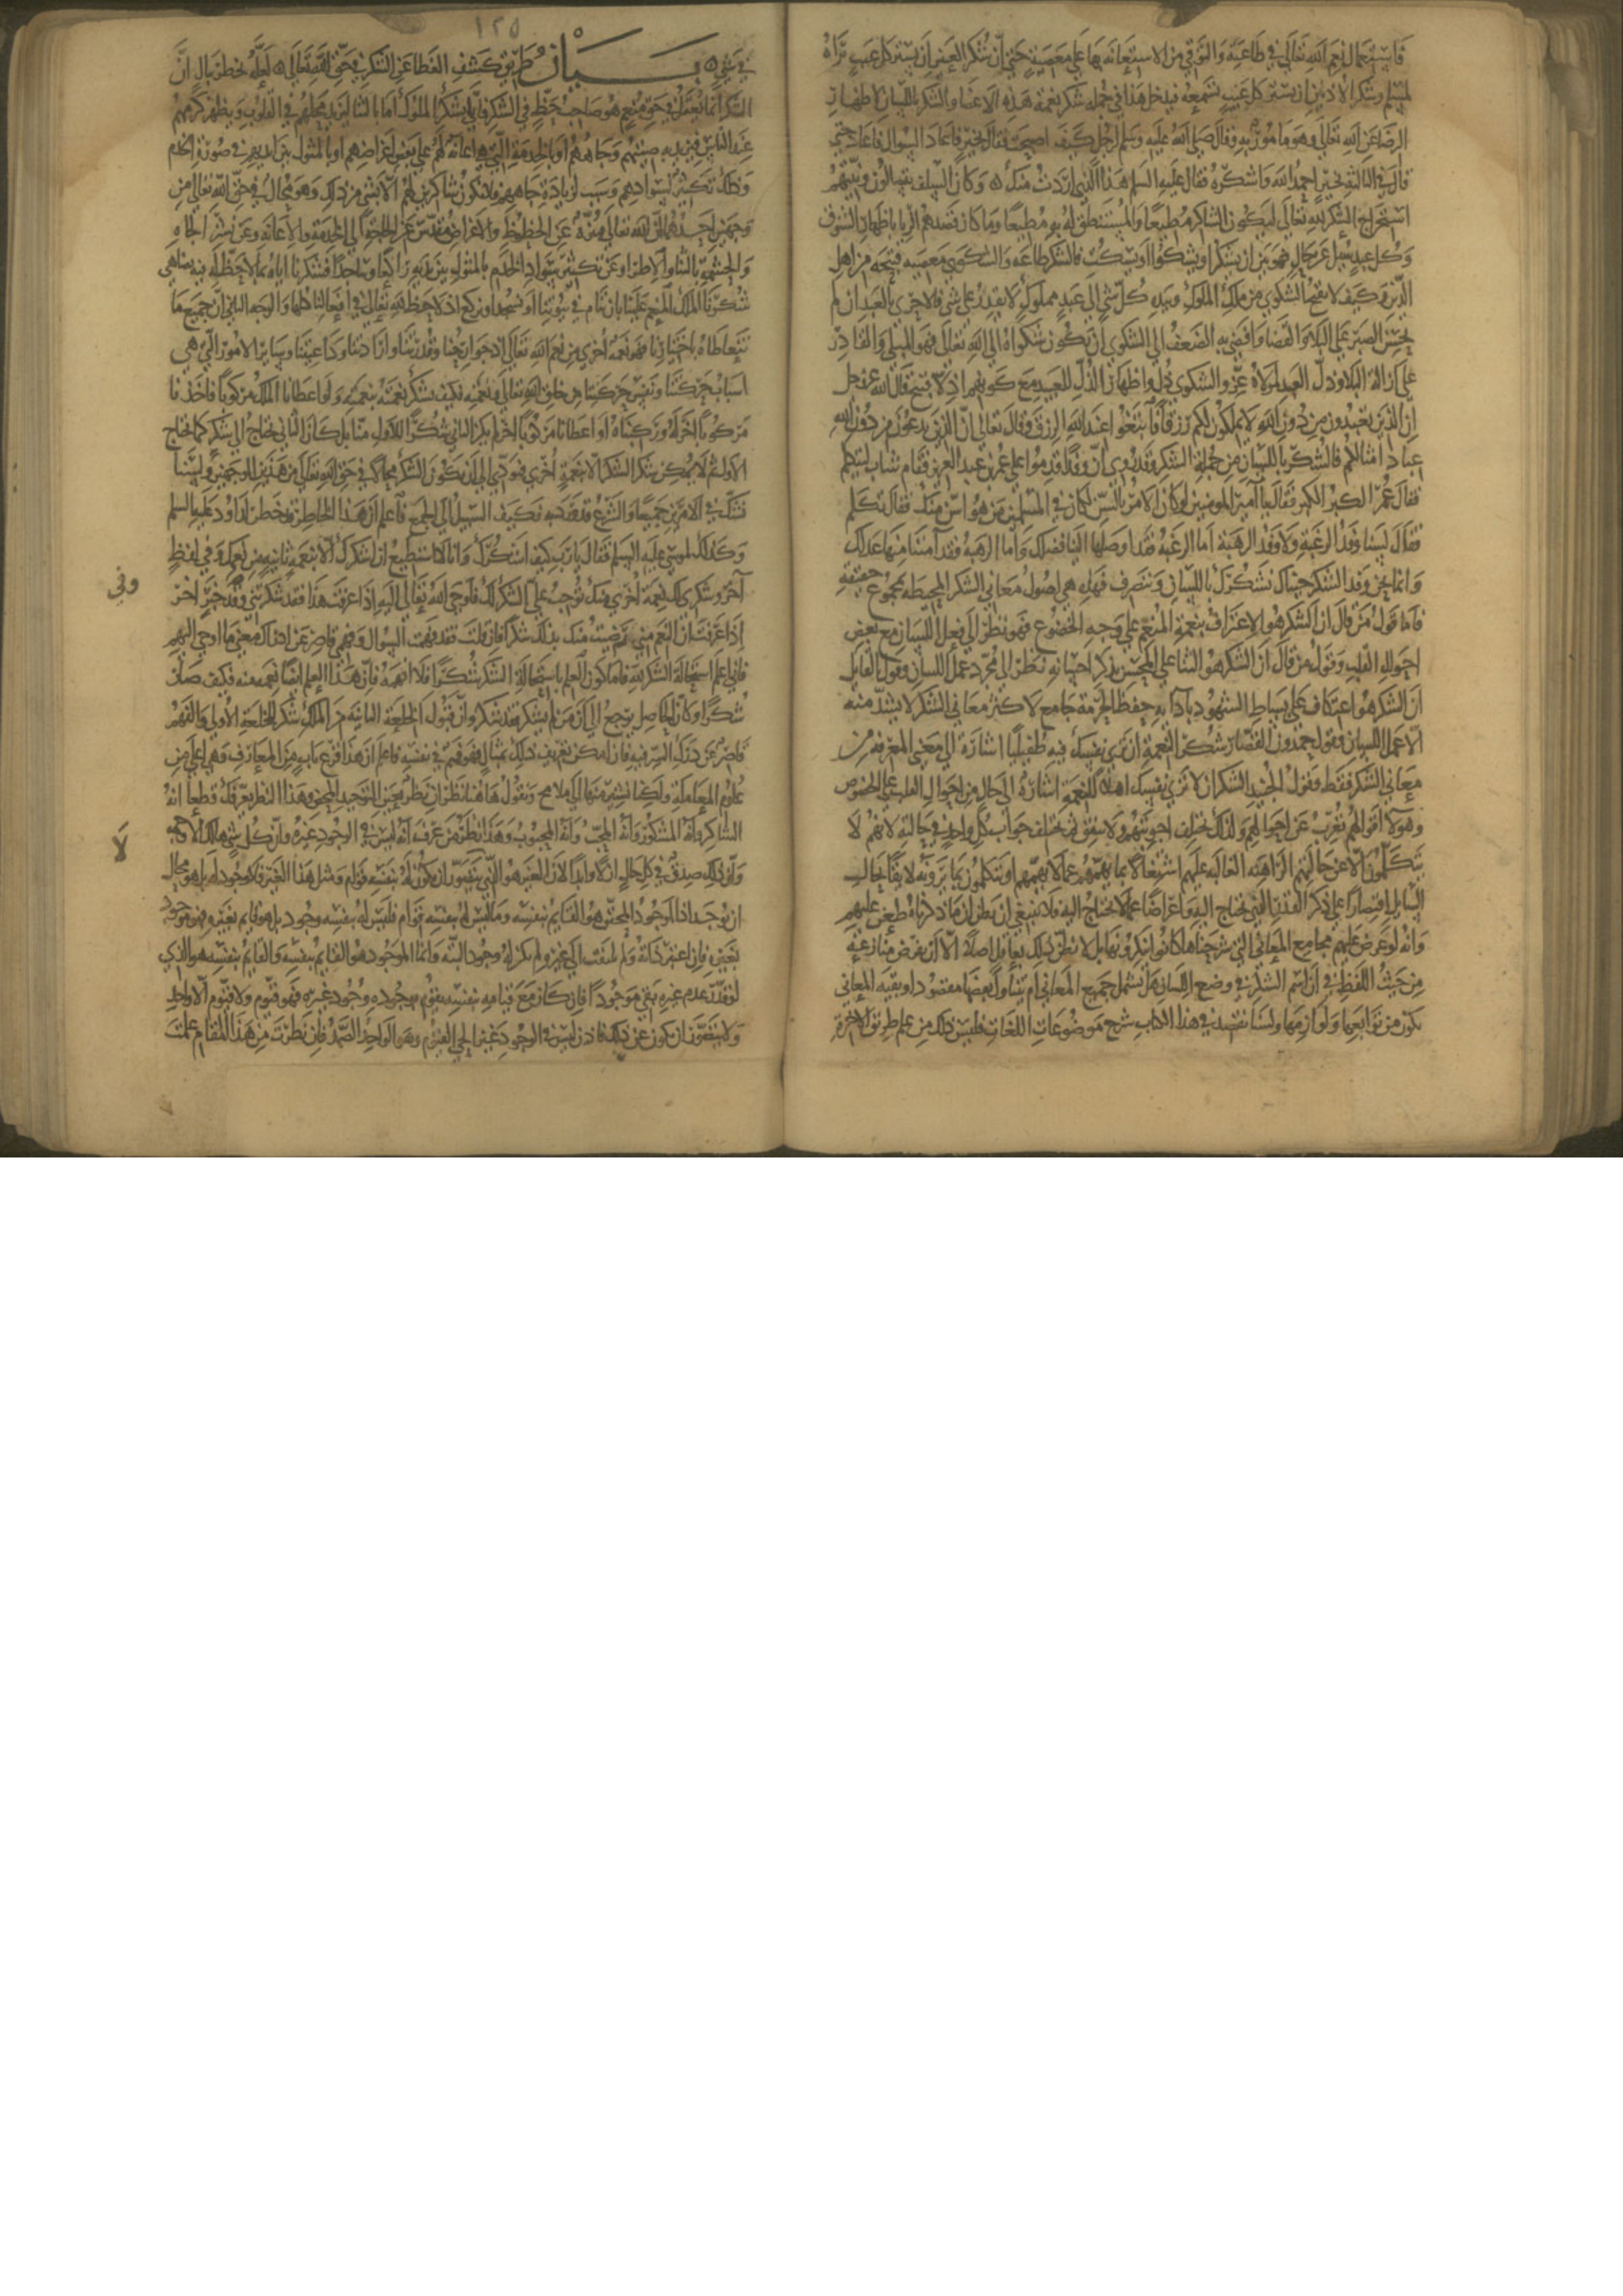 فاستعمال نعم الله تعالى في طاعته والتوقي من الاستعانة بها على معصيته حتى ان شكر العينين ان يستر كل عيب تراه
لمسلم وشكر الاذنين ان يستر كل عيب تسمعه فيدخل هذا في جملة شكر نعمة هذه الاعضا والشكر باللسان لاظهار
الرضا عن الله تعالى وهو مامور به وقال صلى الله عليه وسلم لرجل كيف اصبحت فقال بخير فاعاد السوال فاعاد حتى
قال في الثالثة بخير احمد الله واشكره فقال عليه السلم هذا الذي اردت منك وكان السلف يتسالون ونيتهم
استخراج الشكر لله تعالى ليكون الشاكر مطيعا والمستنطق له به مطيعا وما كان قصدهم الريا باظهار الشوق
وكل عبد سيل عن حال فهو بين ان يشكر او يشكوا او يسكت فالشكر طاعة والشكوى معصية قبيحة من اهل
الدين وكيف لا تقبح الشكوى من ملك الملوك وبيده كل شي الى عبد مملوك لا يقدر على شي فالاحرى بالعبد ان لم
يحسن الصبر على البلا والقضا وافضى به الضعف الى الشكوى ان تكون شكواه الى الله تعالى فهو المبلي والقادر
على ازالة البلا وذل العبد لمولاه عز والشكوى ذل واظهار الذل للعبيد مع كونهم اذلا قبيح قال الله عز وجل
ان الذين تعبدون من دون الله لا يملكون لكم رزقا فابتغوا عند الله الرزق وقال تعالى ان الذين يدعون من دون الله
عباد امثالكم فالشكر باللسان من جملة الشكر وقد روي ان وفدا قدموا على عمر بن عبد العزيز فقام شاب ليتكلم
فقال عمر الكبر الكبر فقال يا امير المومنين لو كان الامر بالسن لكان في المسلمين من هو اسن منك فقال تكلم
فقال لسنا وفد الرغبة ولا وفد الرهبة اما الرغبة فقد اوصلها الينا فضلك واما الرهبة فقد آمننا منها عدلك
وانما نحن وفد الشكر جيناك نشكرك باللسان وننصرف فهذه هي اصول معاني الشكر المحيطة بمجموع حقيقته
فاما قول من قال ان الشكر هو الاعتراف بنعمة المنعم على وجه الخضوع فهو نظر الى فعل اللسان مع بعض
احوال القلب وقول من قال ان الشكر هو الثنا على المحسن بذكر احسانه نظر الى مجرد عمل اللسان وقول القايل
ان الشكر هو اعتكاف على بساط الشهود بادامة حفظ الحرمة جامع لاكثر معاني الشكر لا يشذ منه
الا عمل اللسان وقول حمدون القصار شكر النعمة ان ترى نفسك فيه طفيليا اشارة الى معنى المعرفة من
معاني الشكر فقط وقول الجنيد الشكر ان لا ترى نفسك اهلا للنعمة اشارة الى حال من احوال القلب على الخصوص
وهولا اقوالهم تعرب عن احوالهم ولذلك تختلف اجوبتهم ولا تتفق ثم تختلف جواب كل واحد في حالته لانهم لا
يتكلمون الا عن حالتهم الراهنة الغالبة عليهم اشتغالا بما يهمهم عما لا يهمهم او يتكلمون بما يرونه لايقا بحال
السايل اقتصارا على ذكر القدر الذي يحتاج اليه واعراضا عما لا يحتاج اليه فلا ينبغي ان يظن ان ما ذكرناه طعن عليهم
وانه لو عرض عليهم مجامع المعاني التي شرحناها كانوا ينكرونها بل لا يظن ذلك بعاقل اصلا الا ان تعرض منازعة
من حيث اللفظ في ان اسم الشكر في وضع اللسان هل يشمل جميع المعاني ام يتناول بعضها مقصودا وبقية المعاني
تكون من توابعها ولوازمها ولسنا نقصد في هذا الكتاب شرح موضوعات اللغات فليس ذلك من علم طريق الاخرة
١٢٥
في شي بيان طريق كشف الغطا عن الشكر في حق الله تعالى لعله يخطر ببال ان
الشكر انما يعقل في حق منعم هو صاحب حظ في الشكر فانا نشكر الملوك اما بالثنا ليزيد محلهم في القلوب ويظهر كرمهم
عند الناس فيزيد به صيتهم وجاههم او بالخدمة التي هي اعانة لهم على بعض اغراضهم او بالمثول بين ايديهم في صورة الخدم
وذلك تكثير لسوادهم وسبب لزيادة جاههم فلا نكون شاكرين لهم الا بشي من ذلك وهو محال في حق الله تعالى من
وجهين احدهما ان الله تعالى منزه عن الحظوظ والاغراض مقدس عن الحاجة الى الخدمة والاعانة وعن نشر الجاه
والحشمة بالثنا والاطرا وعن تكثير سواد الخدم بالمثول بين يديه راكعا وساجدا فشكرنا اياه بما لا حظ له فيه يضاهي
شكرنا الملك المنعم علينا بان ننام في بيوتنا او نسجد او نركع اذ لا حظ لله تعالى في افعالنا كلها والوجه الثاني ان جميع ما
نتعاطاه باختيارنا فهو نعمة اخرى من نعم الله تعالى اذ جوارحنا وقدرتنا وارادتنا وداعيتنا وساير الامور التي هي
اسباب حركتنا ونفس حركتنا من خلق الله تعالى ونعمته فكيف نشكر نعمته بنعمته ولو اعطانا الملك مركوبا فاخذنا
مركوبا اخر له وركبناه او اعطانا مركوبا اخر لم يكن الثاني شكرا للاول منا بل كان الثاني يحتاج الى شكر كما يحتاج
الاول ثم لا يمكن شكر الشكر الا بنعمة اخرى فيودي الى ان يكون الشكر محالا في حق الله تعالى من هذين الوجهين ولسنا
نشك في الامرين جميعا والشرع قد ورد به فكيف السبيل الى الجمع فاعلم ان هذا الخاطر قد خطر لداود عليه السلم
وكذلك لموسى عليه السلم فقال يا رب كيف اشكرك وانا لا استطيع ان اشكرك الا بنعمة ثانية من نعمك وفي لفظ
آخر وشكري لك نعمة اخرى منك توجب علي الشكر لك فاوحى الله تعالى اليه اذا عرفت هذا فقد شكرتني وفي خبر اخر
وفي
اذا عرفت ان النعم مني رضيت منك بذلك شكرا فان قلت فقد فهمت السوال وفهمي قاصر عن ادراك معنى ما اوحي اليهم
فاني اعلم استحالة الشكر لله فاما كون العلم باستحالة الشكر شكرا فلا افهمه فان هذا العلم ايضا نعمة منه فكيف صار
شكرا وكان الحاصل يرجع الى ان من لم يشكر فقد شكر وان قبول الخلعة الثانية من الملك شكر للخلعة الاولى والفهم
قاصر عن درك السر فيه فان امكن تعريف ذلك بمثال فهو مهم في نفسه فاعلم ان هذا قرع باب من المعارف وهي اعلى من
علوم المعاملة ولكنا نشير منها الى ملامح ونقول هاهنا نظران نظر بعين التوحيد المحض وهذا النظر يعرفك قطعا انه
الشاكر وانه المشكور وانه المحب وانه المحبوب وهذا نظر من عرف انه ليس في الوجود غيره وان كل شي هالك الا وجهه
لا
وان ذلك صدق في كل حال ازلا وابدا لان الغير هو الذي يتصور ان يكون له بنفسه قوام ومثل هذا الغير لا وجود له بل هو محال
ان يوجد اذ الموجود المحقق هو القايم بنفسه وما ليس له بنفسه قوام فليس له بنفسه وجود بل هو قايم بغيره فهو موجود
بغيره فان اعتبر ذاته ولم يلتفت الى غيره لم يكن له وجود البتة وانما الموجود هو القايم بنفسه والقايم بنفسه هو الذي
لو قدر عدم غيره بقي موجودا فان كان مع قيامه بنفسه يقوم بوجوده وجود غيره فهو قيوم ولا قيوم الا واحد
ولا يتصور ان يكون غير ذلك فاذن ليس في الوجود غير الحي القيوم وهو الواحد الصمد فان نظرت من هذا المقام علمت